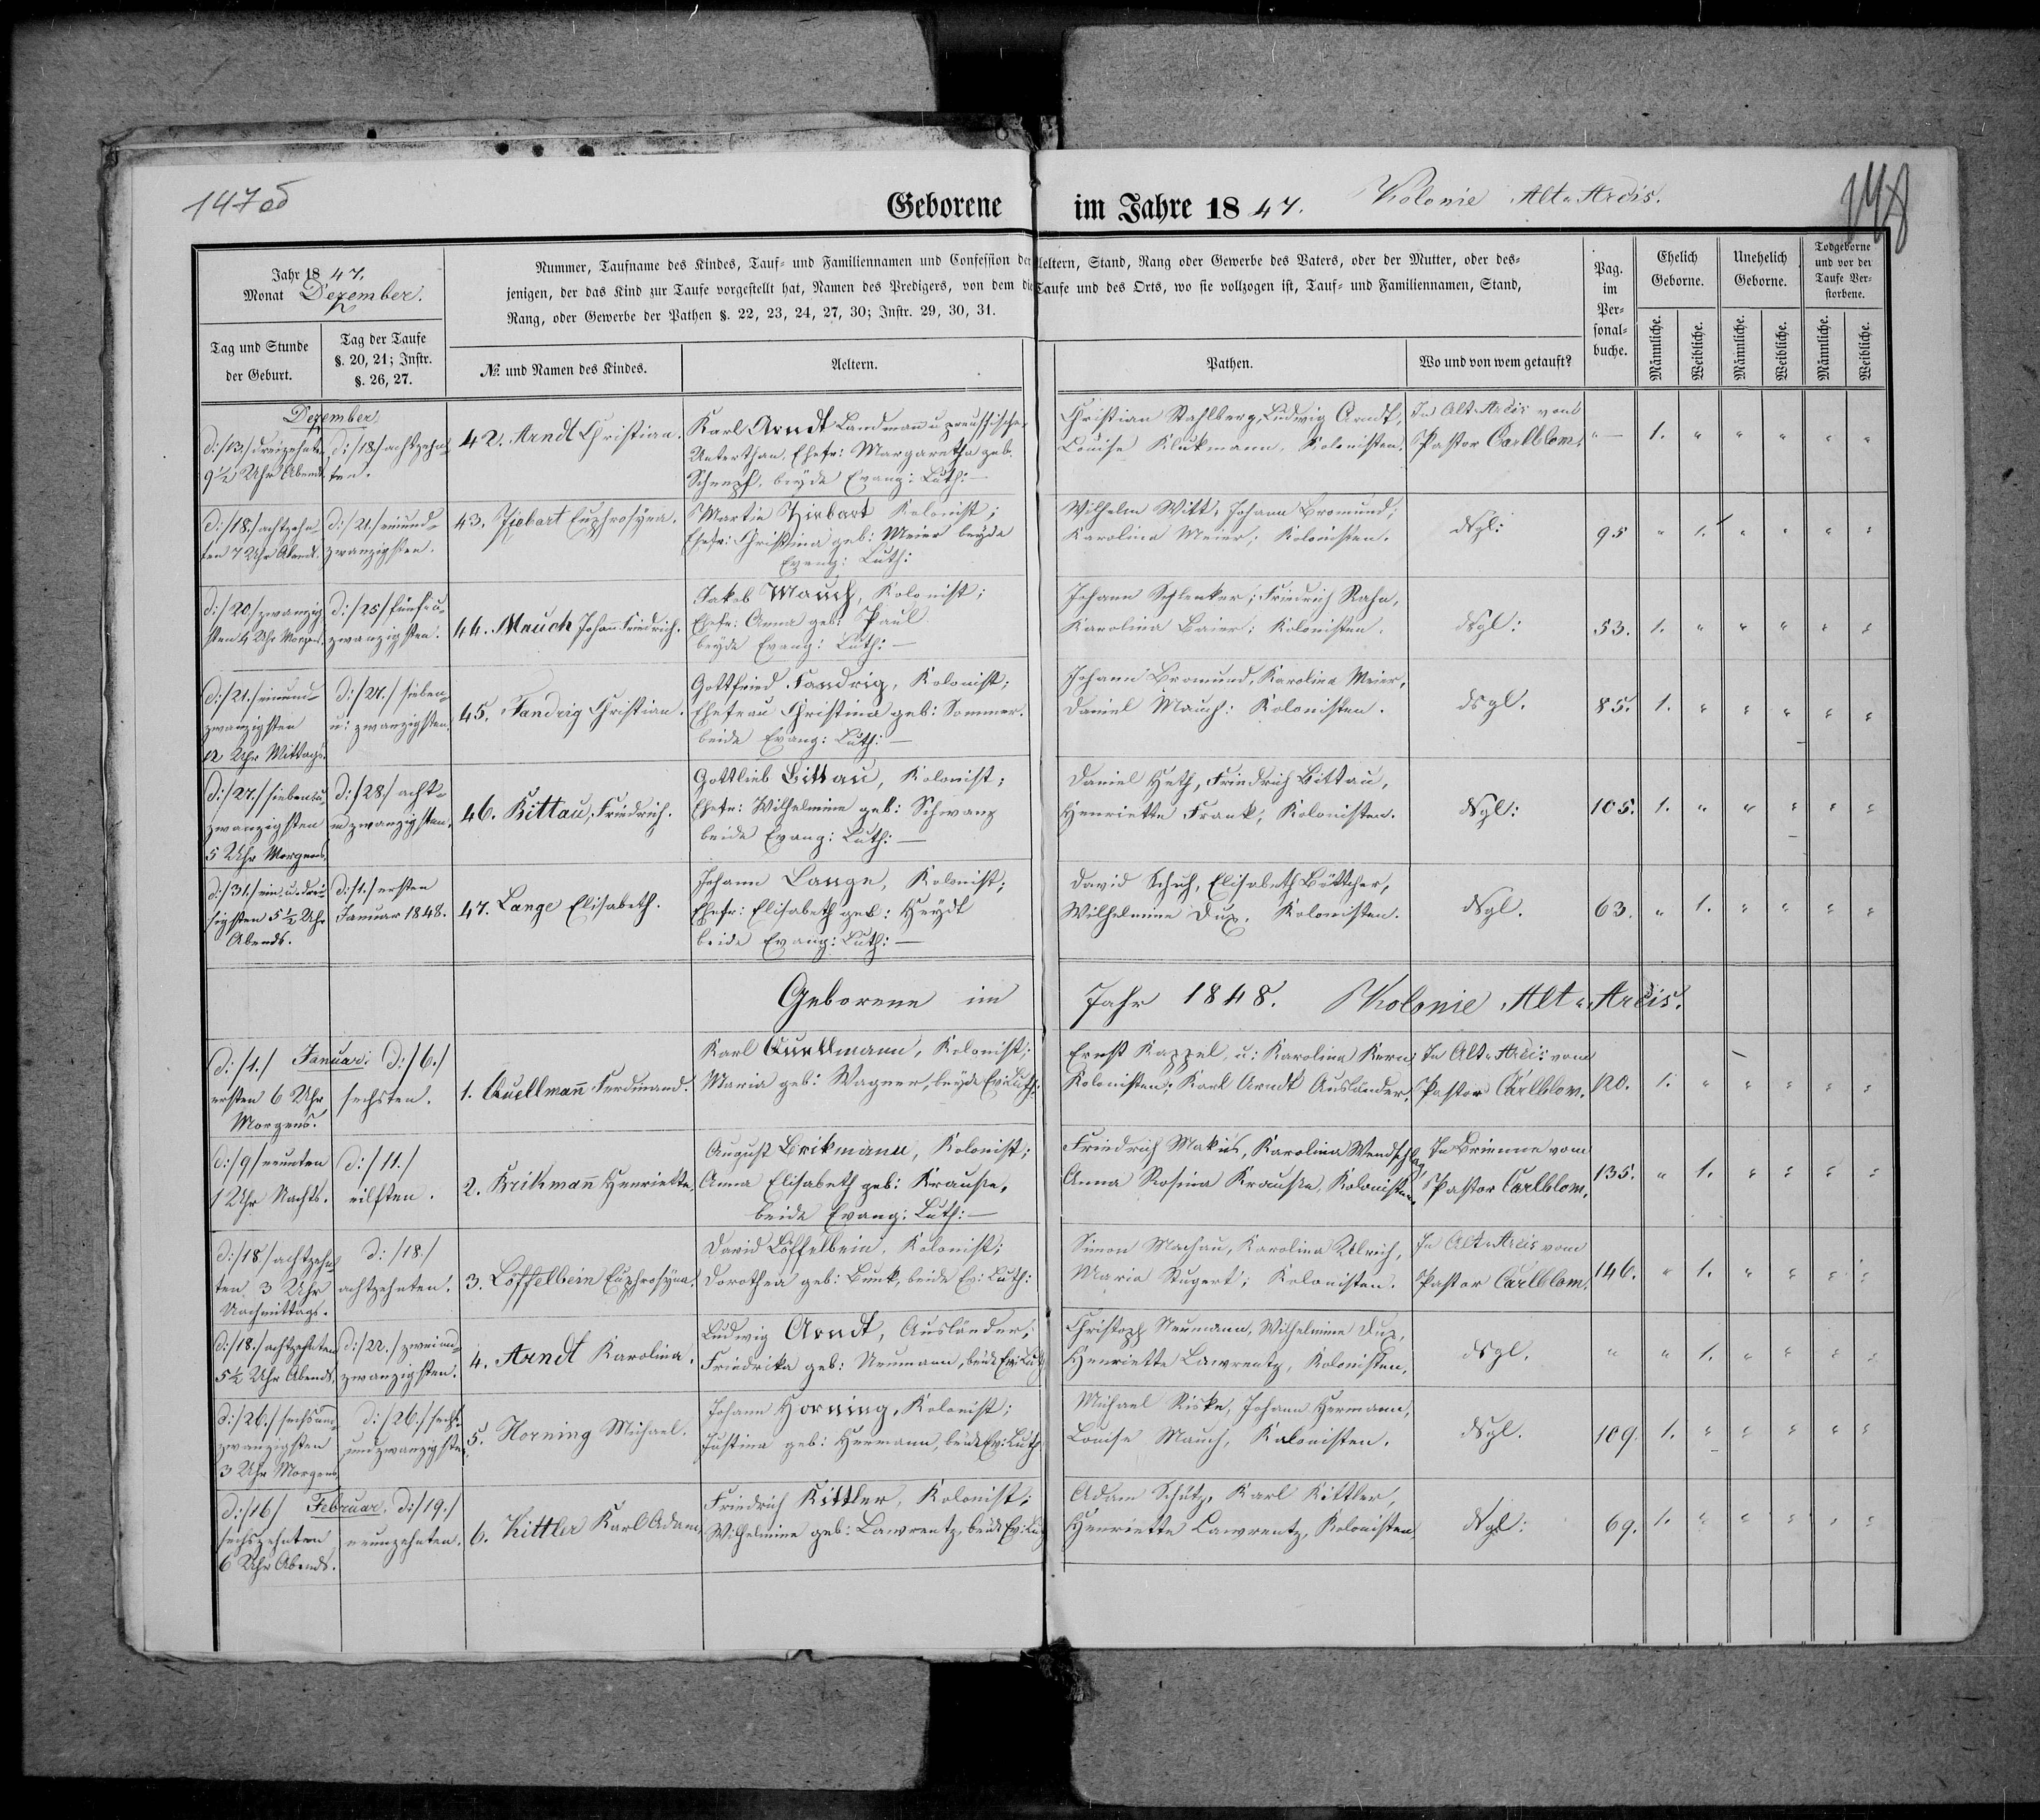 147 об
Geborene im Jahre 18 47. Kolonie Alt-Arcis.
148
Jahr 18 47.
Monat Dezember.
Tag und Stunde
der Geburt.
Tag der Taufe
§. 20, 21; Instr.
§. 26, 27.
Nummer, Taufname des Kindes, Tauf- und Familiennamen und Confession der Aeltern, Stand, Rang oder Gewerbe des Vaters, oder der Mutter, oder des-
jenigen, der das Kind zur Taufe vorgestellt hat, Namen des Predigers, von dem die Taufe und des Orts, wo sie vollzogen ist, Tauf- und Familiennamen, Stand,
Rang, oder Gewerbe der Pathen §. 22, 23, 24, 27, 30; Instr. 29, 30, 31.
№. und Namen des Kindes.
Aeltern.
Pathen.
Wo und von wem getauft?
Pag.
im
Per-
sonal-
buche.
Ehelich
Geborne.
Unehelich
Geborne.
Todgeborne
und vor der
Taufe Ver-
storbene.
Männliche.
Weibliche.
Männliche.
Weibliche.
Männliche.
Weibliche.
Dezember
d: /13./ dreizehnten
9½ Uhr Abends
d: /18./ achtzehn-
ten.
42. Arndt Christian.
Karl Arndt Landmann u preussischer
Unterthan, Ehefr: Margaretha geb.
Schnepf, beyde Evang: Luth:—
Christian Stahlberg, Ludwig Arndt,
Louise Klukmann, Kolonisten.
In Alt-Arcis vom
Pastor Carlblom.
"— 1. " " " " "
d: /18./ achtzehn-
ten 7 Uhr Abend.
d: /21./ einund-
zwanzigsten.
43. Ziebart Euphrosyna.
Martin Ziebart Kolonist;
Ehefr: Christina geb: Meier beyde
Evang: Luth:
Wilhelm Witt, Johann Bromund,
Karolina Meier; Kolonisten.
dsgl:
95 " 1. " " " "
d: /20./ zwanzig-
sten 4 Uhr Morgen.
d: /25/ fünf-u.
zwanzigsten.
44. Mauch Johann Friedrich.
Jakob Mauch, Kolonist;
Ehefr: Anna geb: Paul
beyde Evang: Luth:—
Johann Schlenker; Friedrich Rahn,
Karolina Baier; Kolonisten.
dsgl:
53. 1. " " " " "
d: /21./ einund-
zwanzigsten
12 Uhr Mittags.
d: /27./ sieben-
u: zwanzigsten.
45. Fandrig Christian.
Gottfried Fandrig, Kolonist;
Ehefrau Christina geb: Sommer.
beide Evang: Luth:—
Johann Bromund, Karolina Meier,
Daniel Mauch: Kolonisten.
dsgl.
85. 1. " " " " "
d: /27./ siebenu.
zwanzigsten
5 Uhr Morgens.
d: /28/ acht-
u zwanzigsten.
46. Bittau, Friedrich.
Gottlieb Bittau, Kolonist;
Ehefr: Wilhelmine geb: Schwanz
beide Evang: Luth:—
Daniel Heth, Friedrich Bittau,
Henriette Frank, Kolonisten.
dsgl:
105. 1. " " " " "
d: /31./ ein-u. drei-
sigsten 5½ Uhr
Abends.
d: /1./ ersten
Januar 1848.
47. Lange Elisabeth.
Johann Lange, Kolonist;
Ehefr: Elisabeth geb: Heydt
beide Evang: Luth:—
David Schuh, Elisabeth Böttcher,
Wilhelmine Dux, Kolonisten.
dsgl.
63. " 1. " " " "
Geborene im Jahr 1848. Kolonie Alt-Arcis.
Januar:
d: /1./
ersten 6 Uhr
Morgens.
d: /6./
sechsten.
1. Quellmañ Ferdinand.
Karl Quellmann, Kolonist;
Maria geb: Wagner, beyde Ev: Luth:
Ernst Kappel, u: Karolina Kern,
Kolonisten; Karl Arndt Ausländer.
In Alt-Arcis vom
Pastor Carlblom.
120. 1. " " " " "
d: /9/ neunten
1 Uhr Nachts.
d: /11./
eilften.
2. Brikmañ Henriette.
August Brikmann, Kolonist;
Anna Elisabeth geb: Krause,
beide Evang: Luth:—
Friedrich Makus, Karolina Wendschlag,
Anna Rosina Krause, Kolonisten.
In Brienne vom
Pastor Carlblom.
135. " 1. " " " "
d: /18/ achtzehn-
ten 3 Uhr
Nachmittags.
d: /18./
achtzehnten.
3. Löffelbein Euphrosyna.
David Löffelbein, Kolonist;
Dorothea geb: Bunk, beide Ev: Luth:
Simon Machau, Karolina Ulrich,
Maria Stugert; Kolonisten.
In Alt-Arcis vom
Pastor Carlblom.
146. " 1. " " " "
d: /18./ achtzehnten
5½ Uhr Abends.
d: /22./ zweiund-
zwanzigsten.
4. Arndt Karolina.
Ludwig Arndt, Ausländer;
Friedrika geb: Neumann, beide Ev: Luth
Christoph Neumann, Wilhelmine Dux,
Henriette Lawrentz, Kolonisten.
dsgl.
" " 1. " " " "
d: /26./ sechsund-
zwanzigsten
3 Uhr Morgens.
d: /26./ sechs-
undzwanzigsten
5. Horning Michael.
Johann Horning, Kolonist;
Justina geb: Hermann, beide Ev: Luth
Michael Riske, Johann Hermann,
Louise Mauch, Kolonisten.
dsgl.
109. 1. " " " " "
Februar.
d: /16/
sechszehnten
6 Uhr Abends.
d: /19./
neunzehnten.
6. Kittler Karl Adam
Friedrich Kittler, Kolonist;
Wilhelmine geb: Lawrentz, beide Ev: Lu
Adam Schütz, Karl Kittler,
Henriette Lawrentz, Kolonisten
dsgl:
69. 1. " " " " "